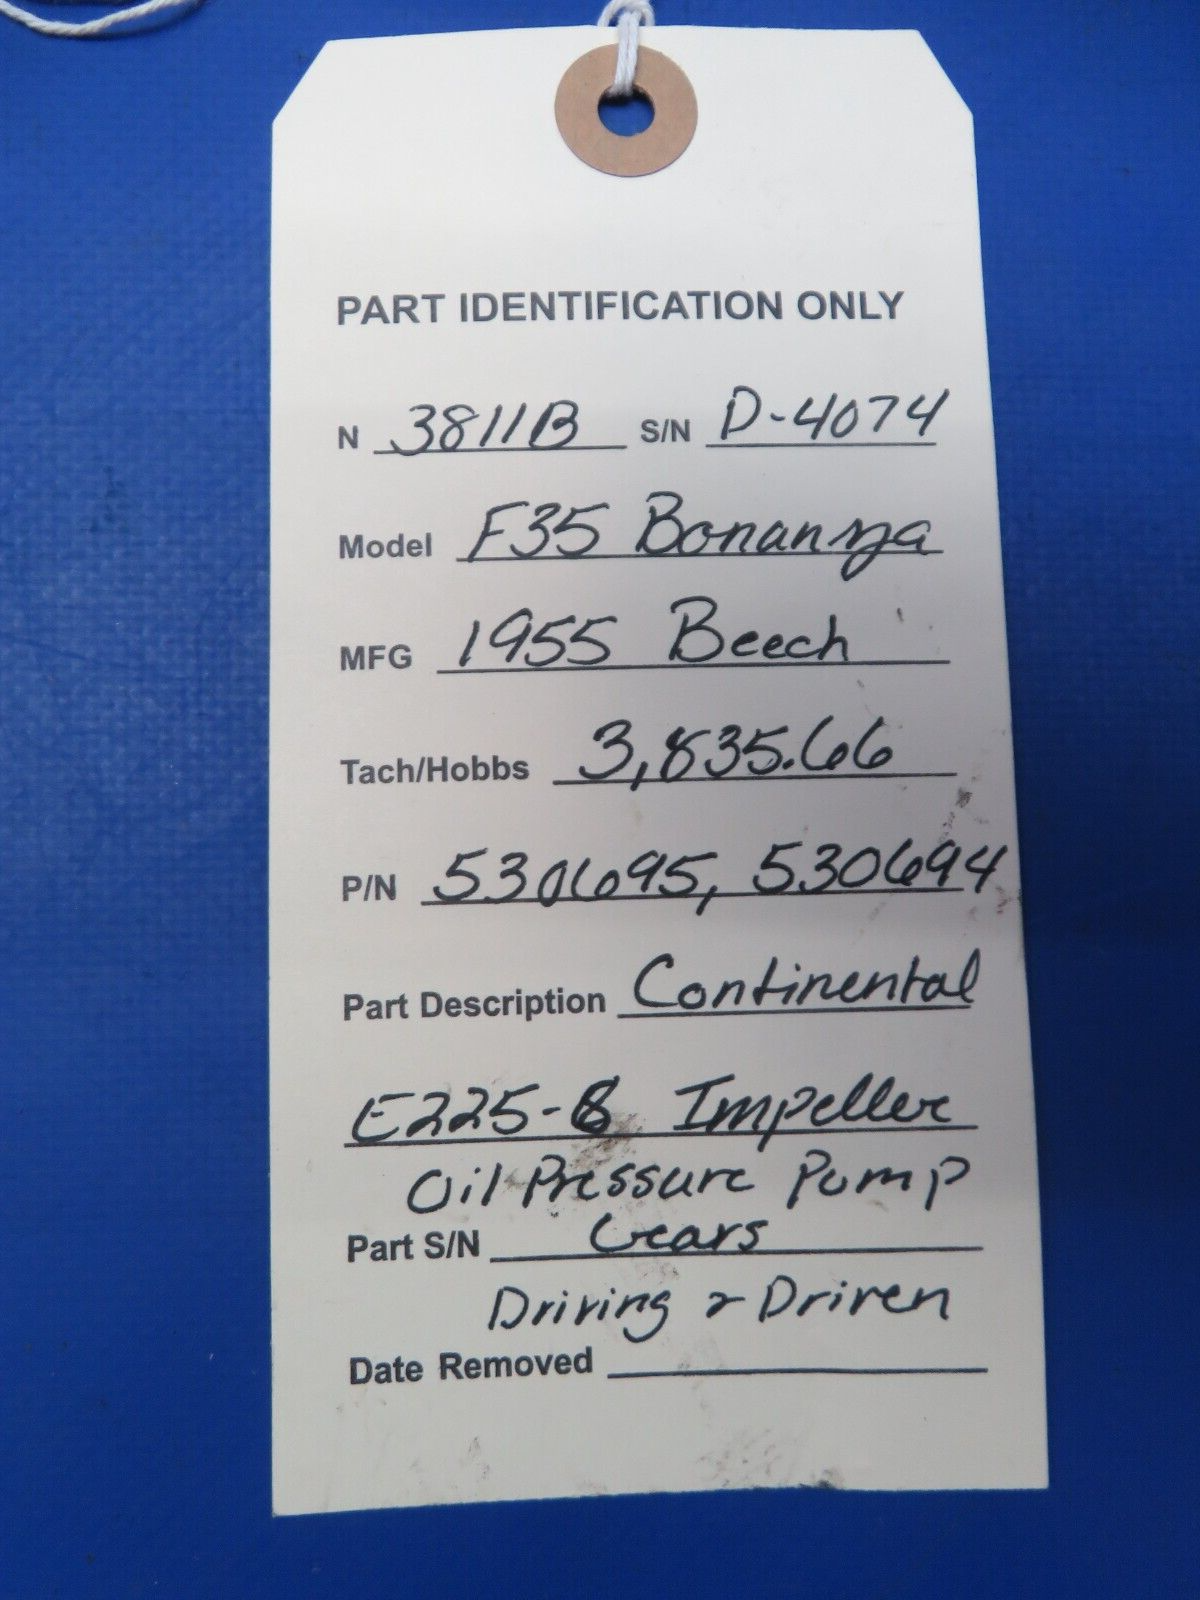 PART IDENTIFICATION ONLY
N 3811B S/N D-4074
Model F35 Bonanza
MFG 1955 Beech
Tach/Hobbs 3,835.66
P/N 530695, 530694
Part Description Continental
E225-8 Impeller
Oil Pressure Pump
Part S/N Gears
Driving & Driven
Date Removed